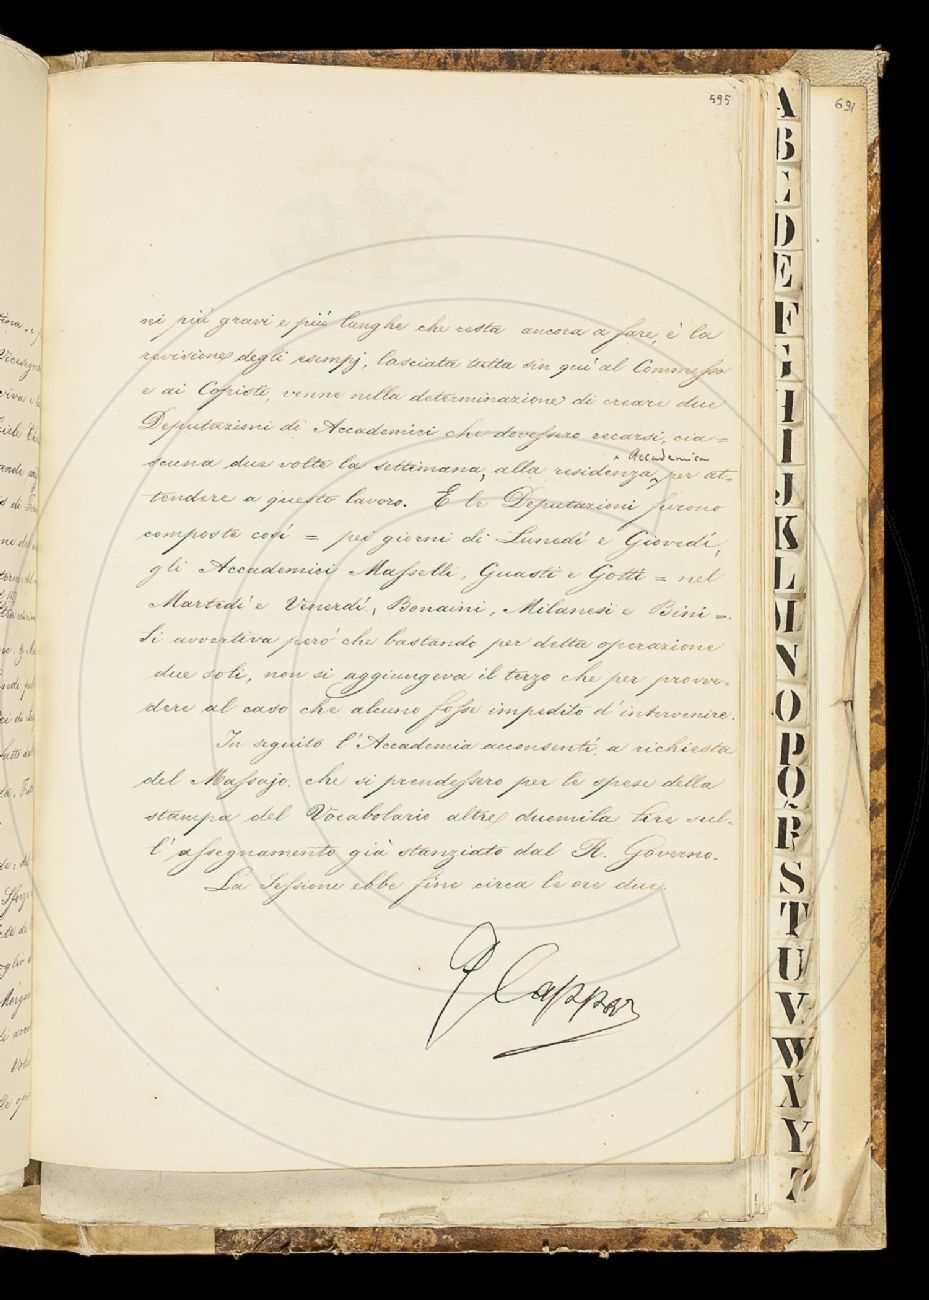 595
631
ni più gravi e più lunghe che resta ancora a fare, è la
revisione degli esempj, lasciata tutta sin qui al Commesso
e ai Copisti, venne nella determinazione di creare due
Deputazioni di Accademici che dovessero recarsi, cia=
scuna due volte la settimana, alla residenza Accademica per at=
tendere a questo lavoro. E le Deputazioni furono
composte così = pei giorni di Lunedí e Giovedí,
gli Accademici Masselli, Guasti e Gotti = nel
Martedí e Venerdí, Bonaini, Milanesi e Bini =.
Si avvertiva però che bastando per detta operazione
due soli, non si aggiungeva il terzo che per provve=
dere al caso che alcuno fosse impedito d'intervenire.
In seguito l'Accademia acconsentì, a richiesta
del Massajo, che si prendessero per le spese della
stampa del Vocabolario altre duemila lire sul=
l'assegnamento già stanziato dal R. Governo.
La Sessione ebbe fine circa le ore due.
G Capponi
A
B
C
D
E
F
G
H
I
J
K
L
M
N
O
P
Q
R
S
T
U
V
W
X
Y
Z